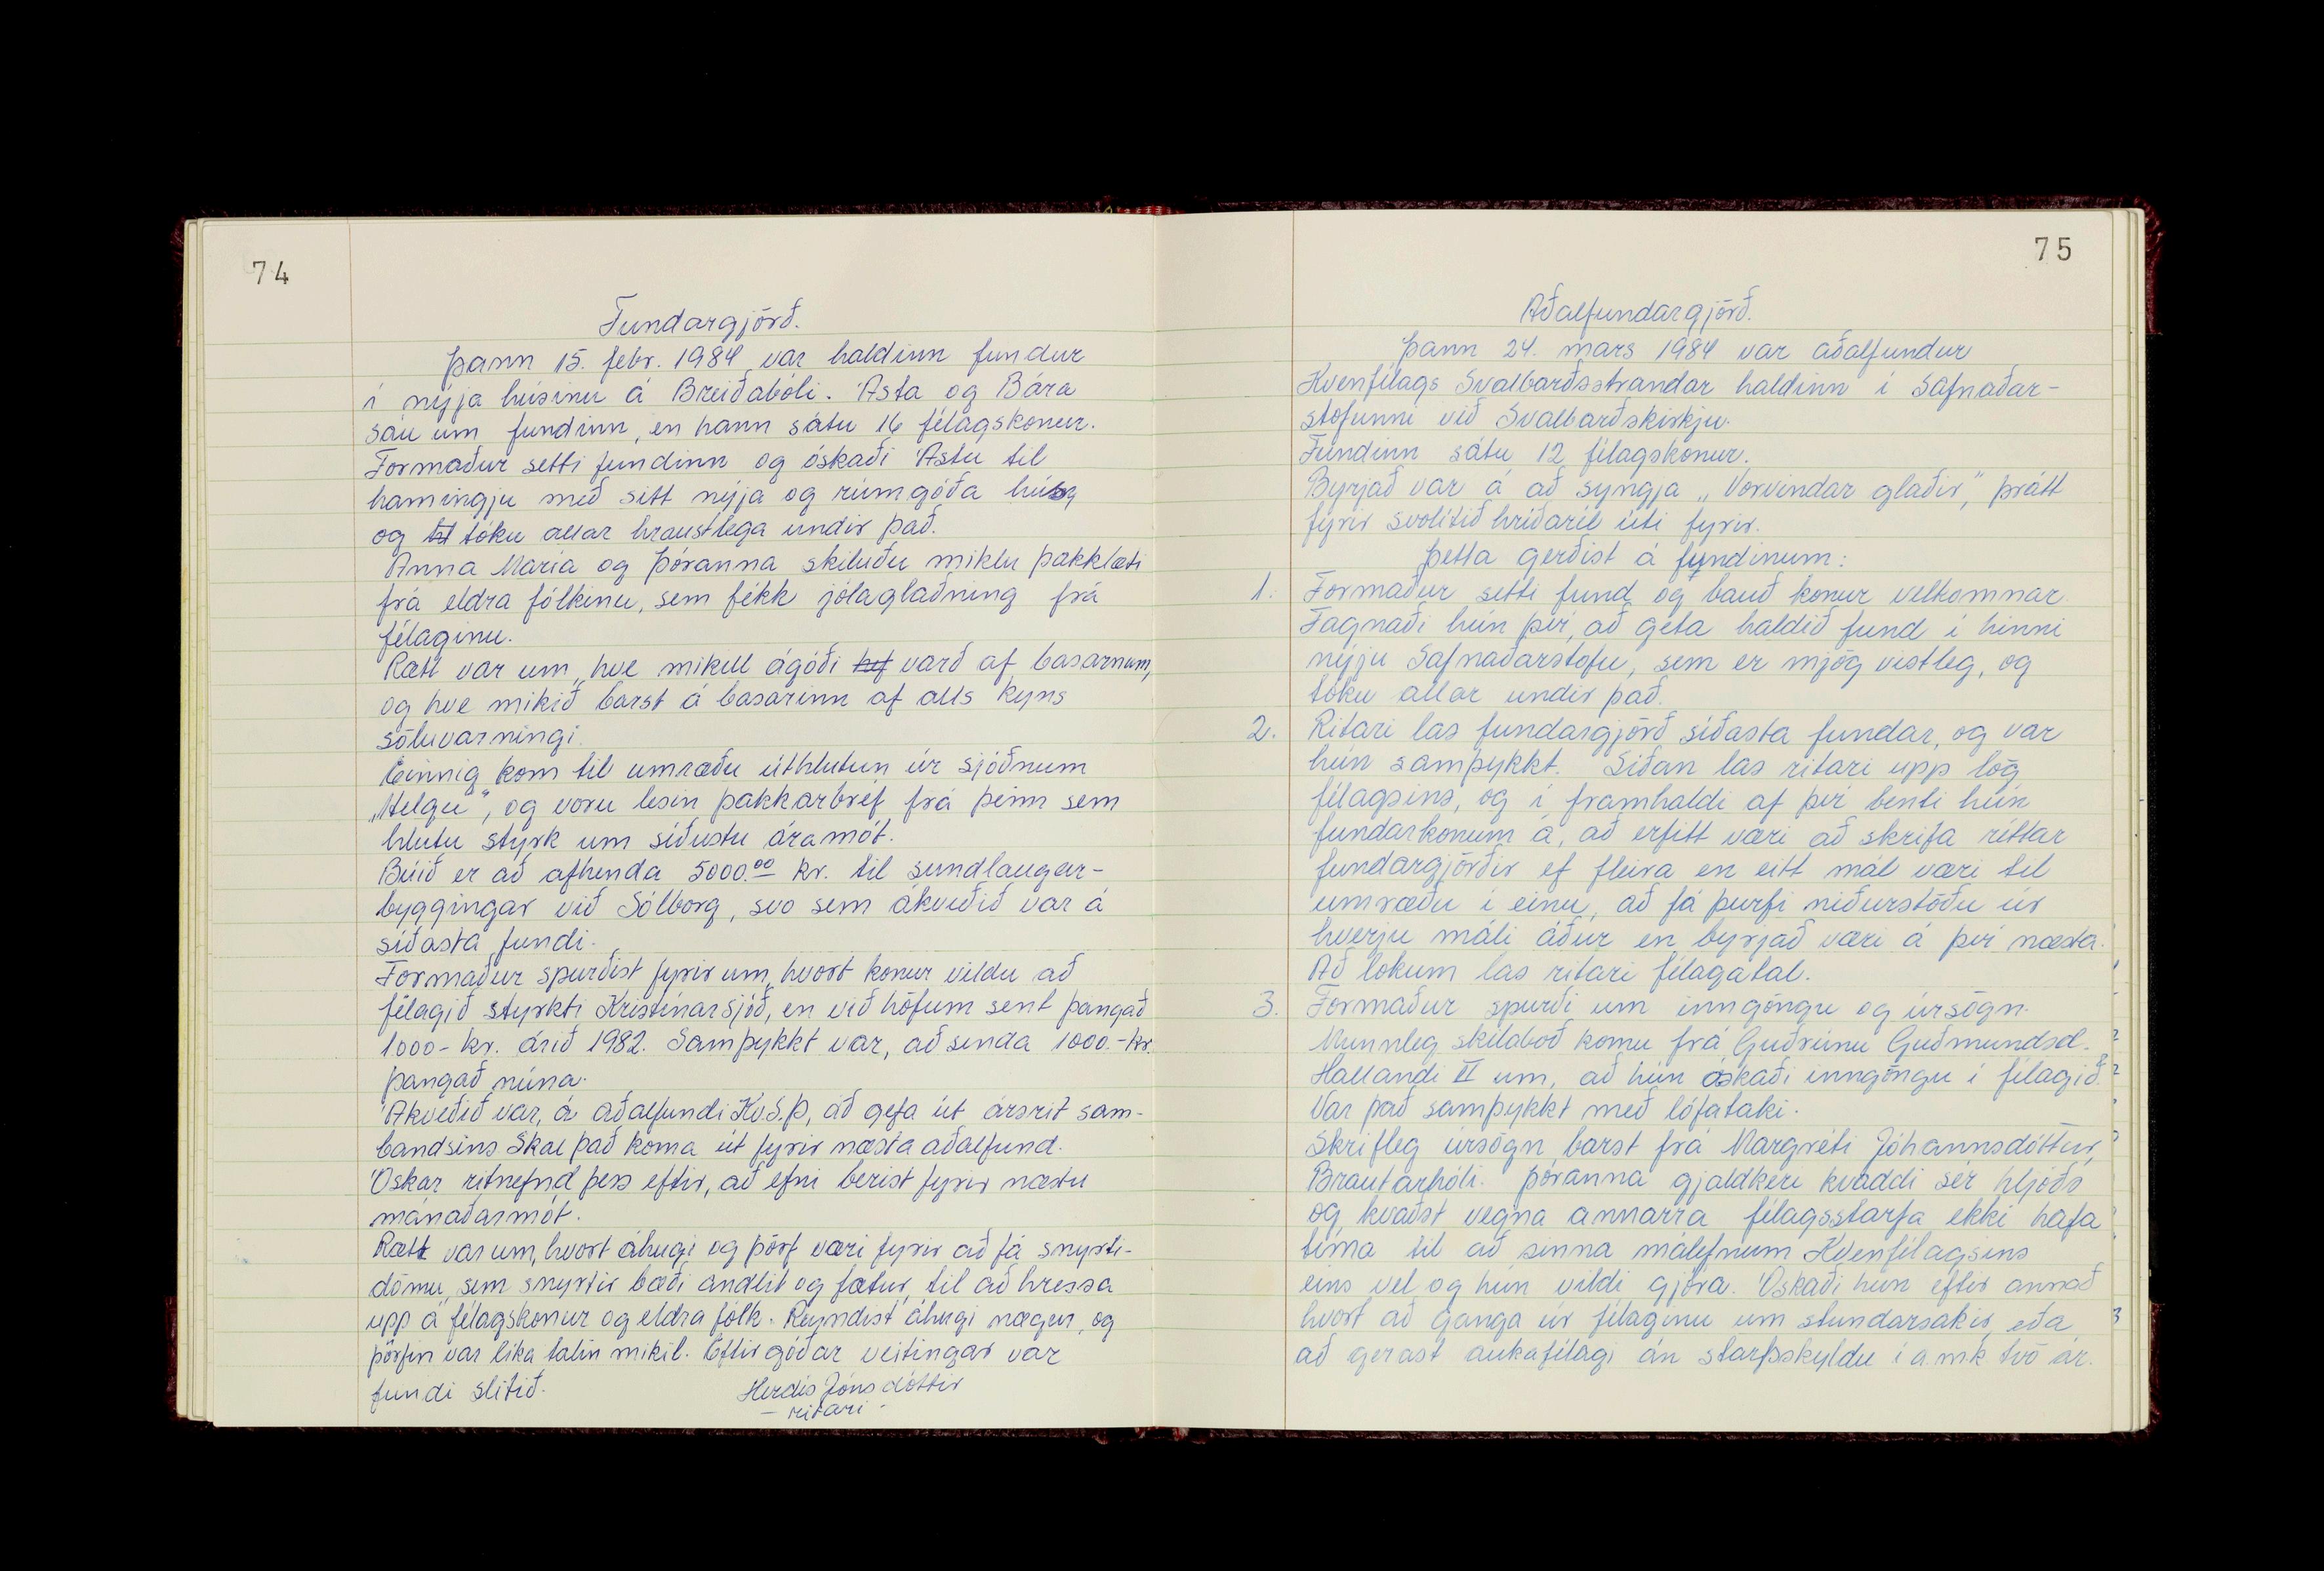 74
Fundargjörð.
Þann 15. febr. 1984 var haldinn fundur
í nýja húsinu á Breiðabóli. Ásta og Bára
sáu um fundinn, en hann sátu 16 félagskonur.
Formaður setti fundinn og óskaði Ástu til
hamingju með sitt nýja og rúmgóða hús
og tóku allar hraustlega undir það.
Anna María og Þóranna skiluðu miklu þakklæti
frá eldra fólkinu, sem fékk jólaglaðning frá
félaginu.
Rætt var um, hve mikill ágóði varð af basarnum,
og hve mikið barst á basarinn af alls kyns
söluvarningi.
Einnig kom til umræðu úthlutun úr sjóðnum
„Helgu", og voru lesin þakkarbréf frá þeim sem
hlutu styrk um síðustu áramót.
Búið er að afhenda 5000.00 kr. til sundlaugar-
byggingar við Sólborg, svo sem ákveðið var á
síðasta fundi.
Formaður spurðist fyrir um, hvort konur vildu að
félagið styrkti Kristínarsjóð, en við höfum sent þangað
1000- kr. árið 1982. Samþykkt var, að senda 1000.- kr.
þangað núna.
Ákveðið var, á aðalfundi Kv.S.Þ, að gefa út ársrit sam-
bandsins. Skal það koma út fyrir næsta aðalfund.
Óskar ritnefnd þess eftir, að efni berist fyrir næstu
mánaðarmót.
Rætt var um, hvort áhugi og þörf væri fyrir að fá snyrti-
dömu, sem snyrtir bæði andlit og fætur, til að hressa
upp á félagskonur og eldra fólk. Reyndist áhugi nægur, og
þörfin var líka talin mikil. Eftir góðar veitingar var
fundi slitið. Herdís Jónsdóttir
- ritari -
75
Aðalfundargjörð.
Þann 24. mars 1984 var aðalfundur
Kvenfélags Svalbarðsstrandar haldinn í Safnaðar-
stofunni við Svalbarðskirkju.
Fundinn sátu 12 félagskonur.
Byrjað var á að syngja „Vorvindar glaðir", þrátt
fyrir svolítið hríðaríl úti fyrir.
Þetta gerðist á fundinum:
1. Formaður setti fund og bauð konur velkomnar.
Fagnaði hún því, að geta haldið fund í hinni
nýju Safnaðarstofu, sem er mjög vistleg, og
tóku allar undir það.
2. Ritari las fundargjörð síðasta fundar, og var
hún samþykkt. Síðan las ritari upp lög
félagsins, og í framhaldi af því benti hún
fundarkonum á, að erfitt væri að skrifa réttar
fundargjörðir ef fleira en eitt mál væri til
umræðu í einu, að fá þurfi niðurstöðu úr
hverju máli áður en byrjað væri á því næsta.
Að lokum las ritari félagatal.
3. Formaður spurði um inngöngu og úrsögn.
Munnleg skilaboð komu frá Guðrúnu Guðmundsd.
Hallandi II um, að hún óskaði inngöngu í félagið.
Var það samþykkt með lófataki.
Skrifleg úrsögn barst frá Margréti Jóhannsdóttur,
Brautarhóli. Þóranna gjaldkeri kvaddi sér hljóðs
og kvaðst vegna annarra félagsstarfa ekki hafa
tíma til að sinna málefnum Kvenfélagsins
eins vel og hún vildi gjöra. Óskaði hún eftir annað
hvort að ganga úr félaginu um stundarsakir, eða
að gerast aukafélagi án starfsskyldu í a.m.k tvö ár.